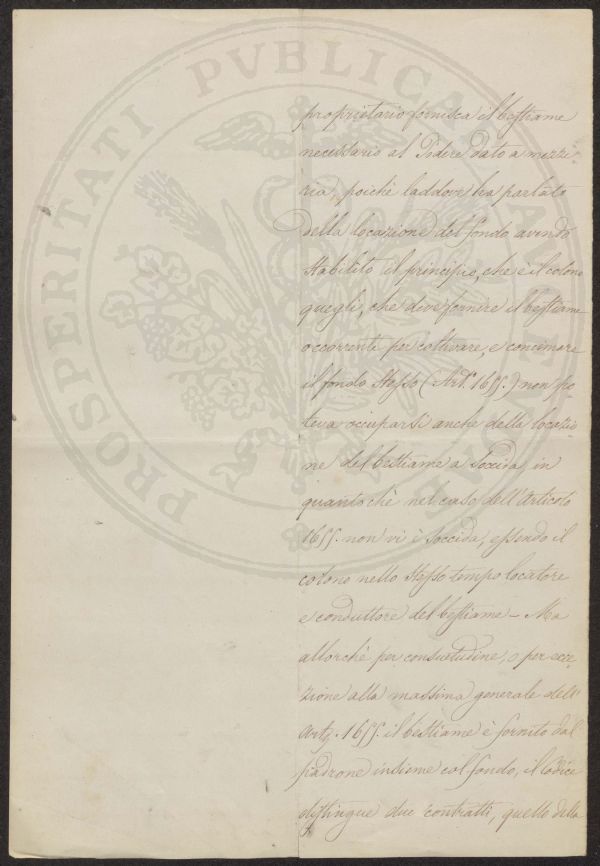 proprietario fornisca il bestiame
necessario al Podere dato a mezze-
ria, poichè laddove ha parlato
della locazione del fondo avendo
stabilito il principio, che è il colono
quegli, che deve fornire il bestiame
occorrente per coltivare, e concimare
il fondo stesso (Art.º 1655.) non po-
teva occuparsi anche della locazio-
ne del bestiame a Soccida, in
quantochè nel caso dell'Articolo
1655. non vi è Soccida, essendo il
colono nello stesso tempo locatore
e conduttore del bestiame — Ma
allorchè per consuetudine, o per ecce-
zione alla massima generale dell'
Art. 1655. il bestiame è fornito dal
padrone insieme col fondo, il Codice
distingue due contratti, quello della
PROSPERITATI PVBLICAE